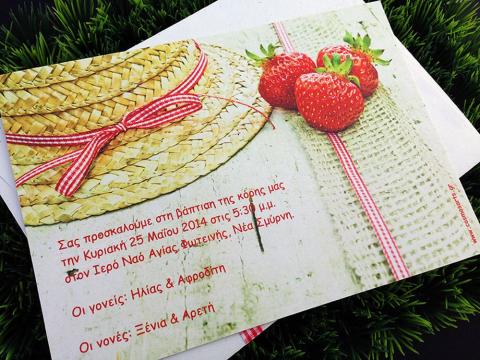 Σας προσκαλούμε στη βάπτιση της κόρης μας
την Κυριακή 25 Μαΐου 2014 στις 5:30 μ.μ.
στον Ιερό Ναό Αγίας Φωτεινής, Νέα Σμύρνη.
Οι γονείς: Ηλίας & Αφροδίτη
Οι νονές: Ξένια & Αρετή